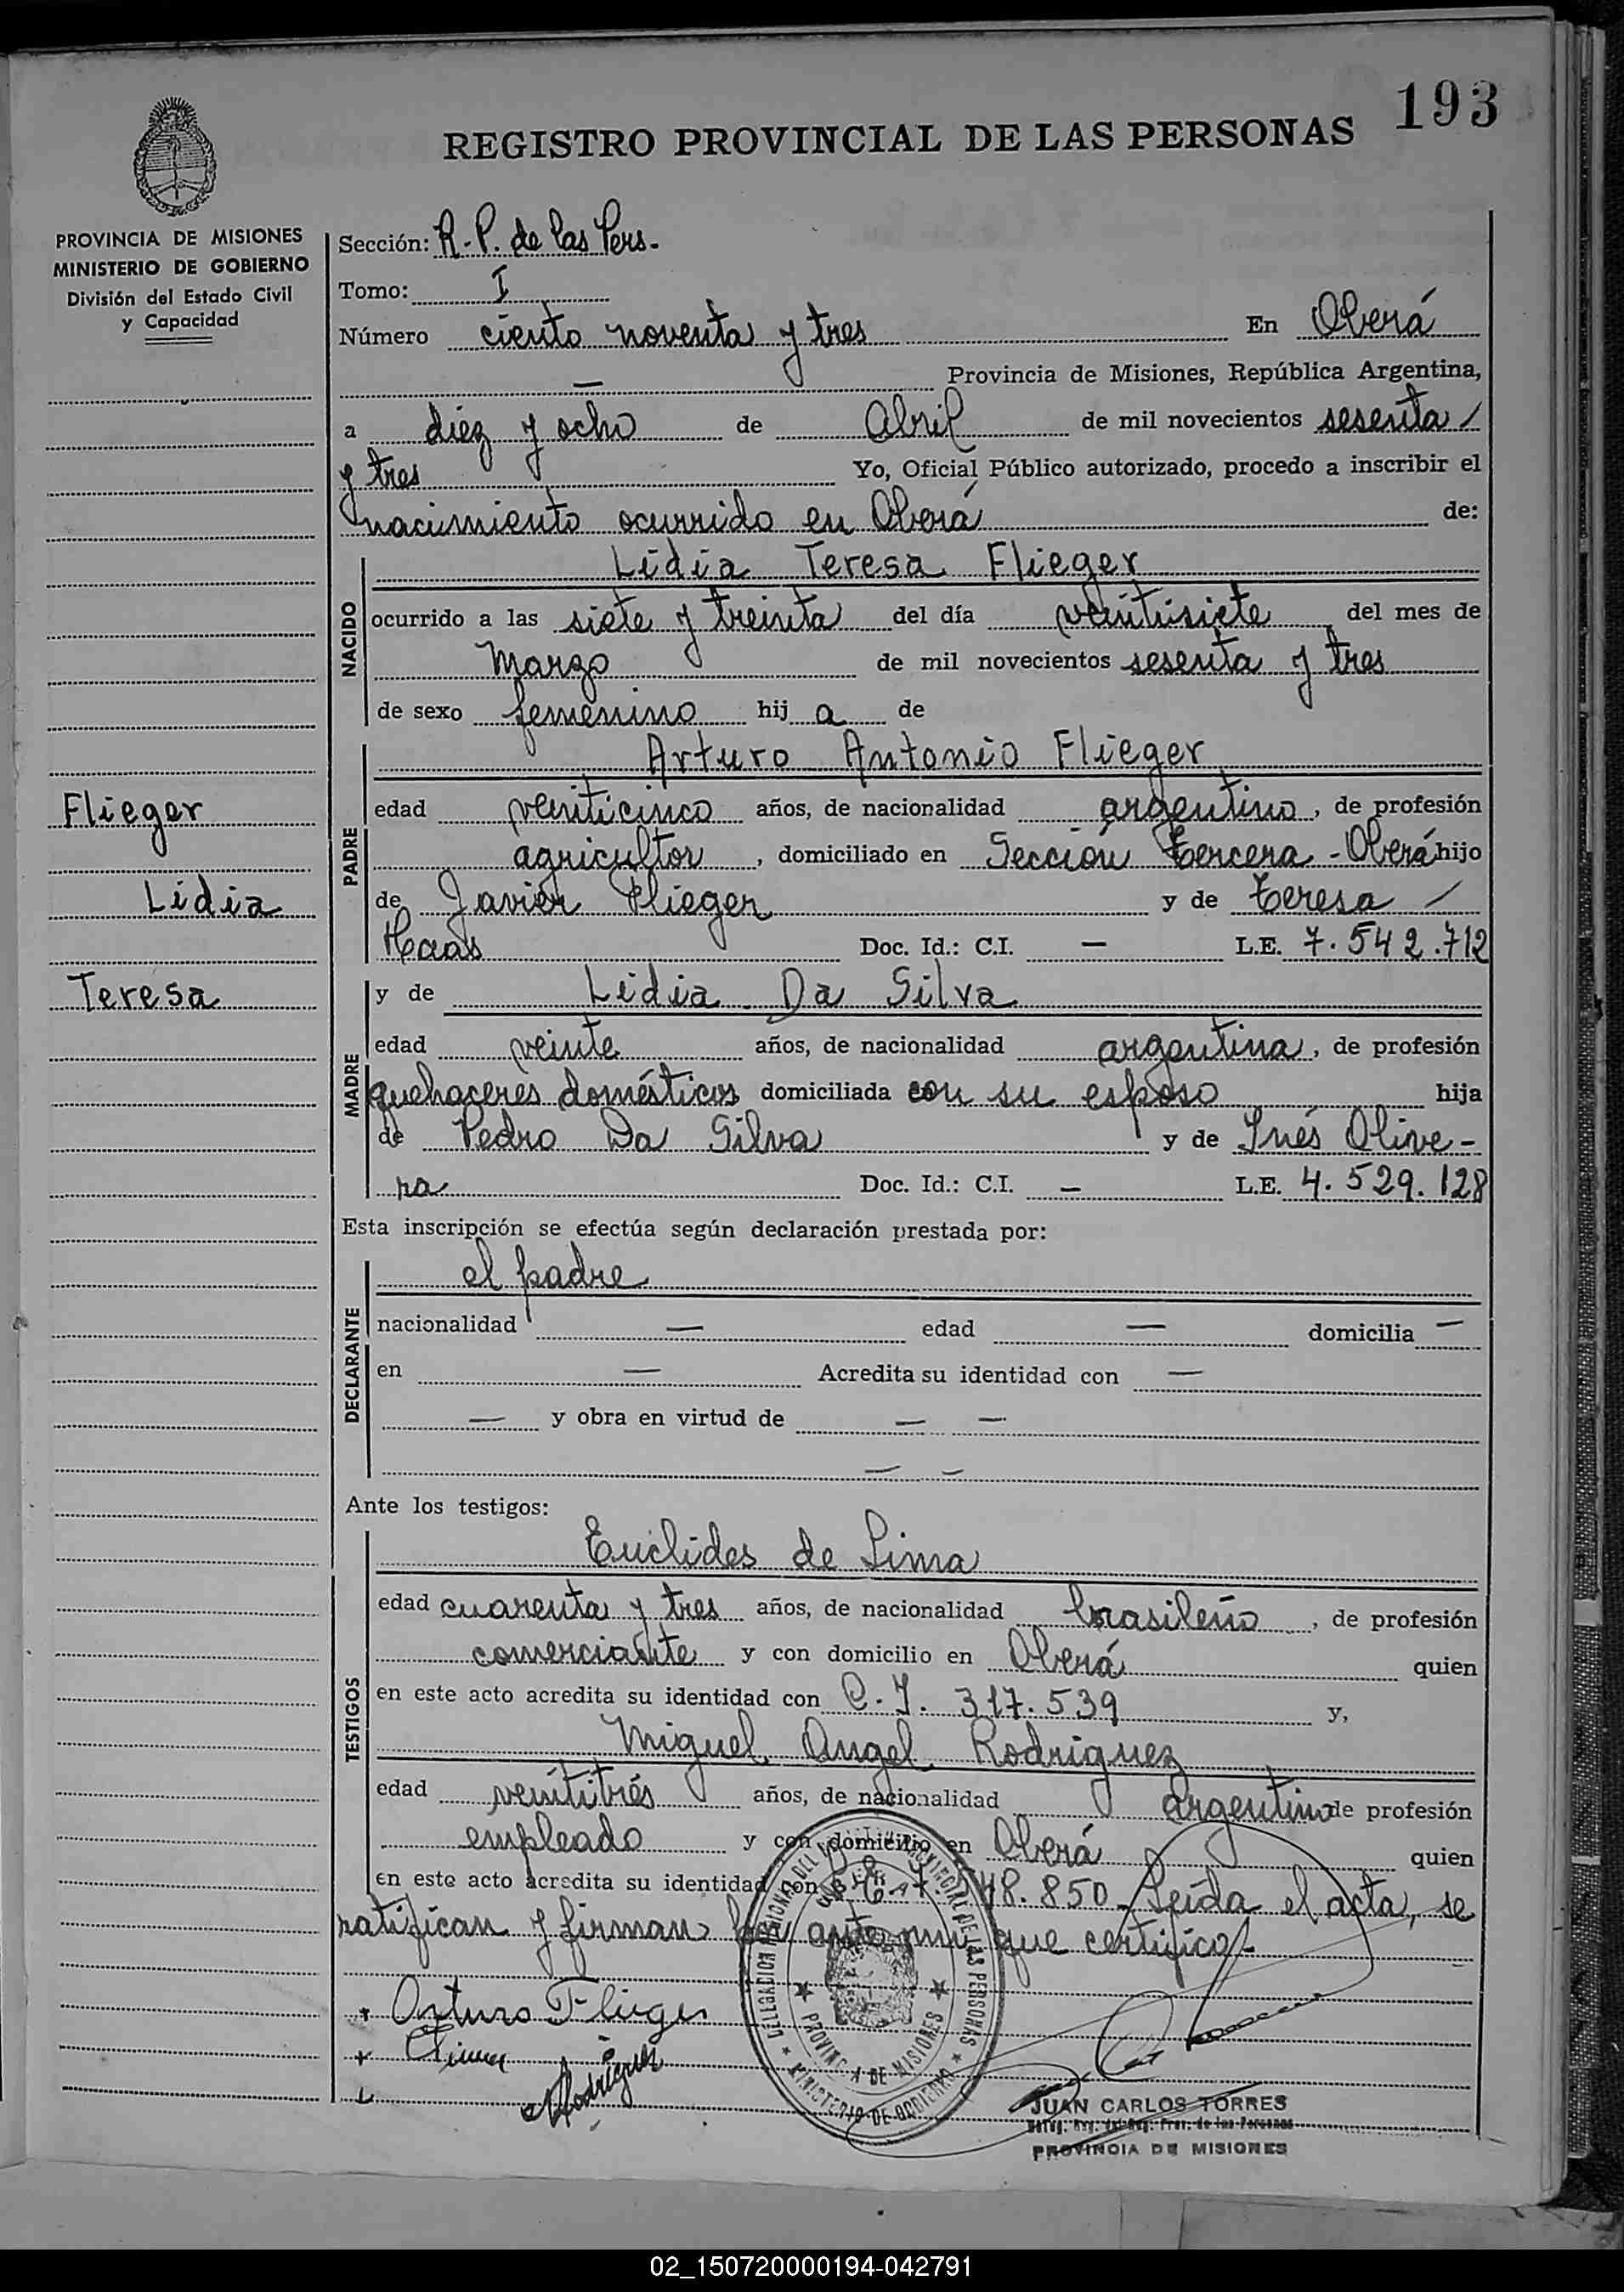 193
REGISTRO PROVINCIAL DE LAS PERSONAS
PROVINCIA DE MISIONES
MINISTERIO DE GOBIERNO
División del Estado Civil
y Capacidad
Sección: R.P. de las Pers.
Tomo: I
Número ciento noventa y tres En Oberá
— Provincia de Misiones, República Argentina,
a diez y ocho de Abril de mil novecientos sesenta /
y tres Yo, Oficial Público autorizado, procedo a inscribir el
nacimiento ocurrido en Oberá de:
NACIDO
Lidia Teresa Flieger
ocurrido a las siete y treinta del día veintisiete del mes de
Marzo de mil novecientos sesenta y tres
de sexo femenino hij a de
PADRE
Arturo Antonio Flieger
edad veinticinco años, de nacionalidad argentino, de profesión
agricultor, domiciliado en Sección Tercera - Oberá hijo
de Javier Flieger y de Teresa /
Haas Doc. Id.: C.I. — L.E. 7.542.712
Flieger
Lidia
Teresa
MADRE
y de Lidia Da Silva
edad veinte años, de nacionalidad argentina, de profesión
quehaceres domésticos domiciliada con su esposo hija
de Pedro Da Silva y de Inés Olive-
ra Doc. Id.: C.I. — L.E. 4.529.128
Esta inscripción se efectúa según declaración prestada por:
DECLARANTE
el padre
nacionalidad — edad — domicilia —
en — Acredita su identidad con —
— y obra en virtud de — —
— —
Ante los testigos:
TESTIGOS
Euclides de Lima
edad cuarenta y tres años, de nacionalidad brasileño, de profesión
comerciante y con domicilio en Oberá quien
en este acto acredita su identidad con C.I. 317.539 y,
Miguel Angel Rodriguez
edad veintitrés años, de nacionalidad argentino de profesión
empleado y con domicilio en Oberá quien
en este acto acredita su identidad con 48.850 - Leída el acta, se
ratifican y firman por ante mí que certifico.-
Arturo Flieger
Rodriguez
DELEGACION REGIONAL DEL REGISTRO PROVINCIAL DE LAS PERSONAS
OBERA
PROVINCIA DE MISIONES
MINISTERIO DE GOBIERNO
JUAN CARLOS TORRES
PROVINCIA DE MISIONES
02_150720000194-042791